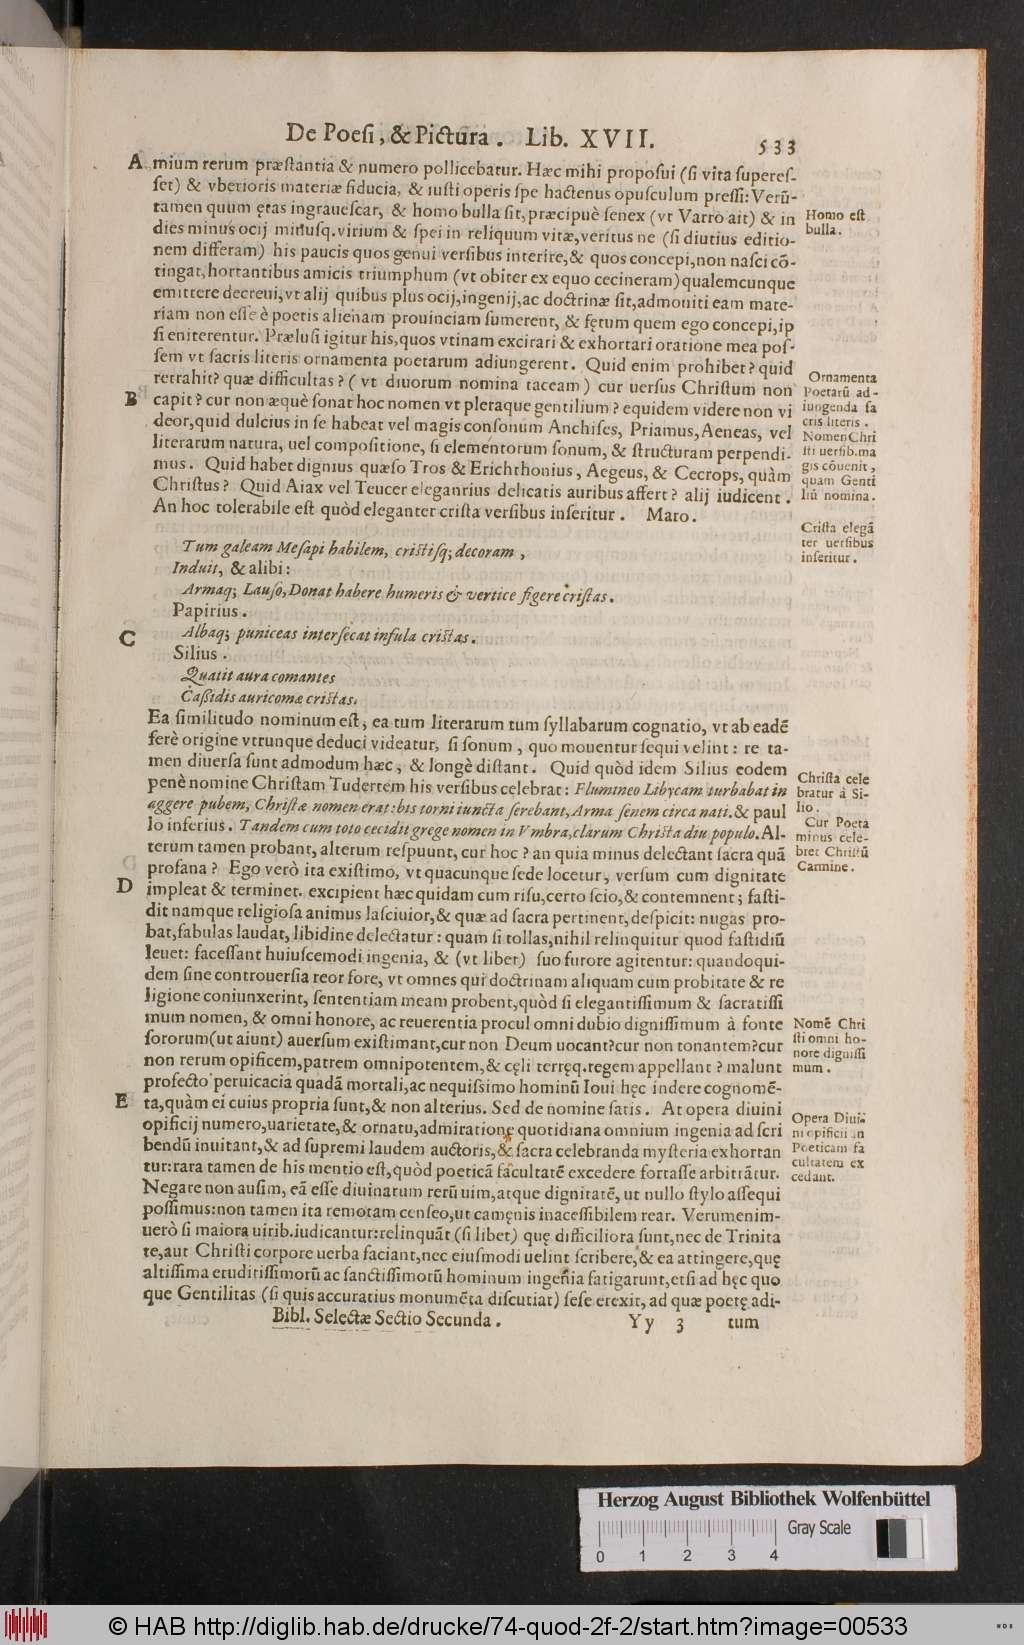 De Poesi, & Pictura. Lib. XVII. 533
A mium rerum præstantia & numero pollicebatur. Hæc mihi proposui (si vita superes-
set) & vberioris materiæ fiducia, & iusti operis spe hactenus opusculum pressi: Verũ-
tamen quum ętas ingrauescat, & homo bulla sit, præcipuè senex (vt Varro ait) & in
dies minus ocij minusq. virium & spei in reliquum vitæ, veritus ne (si diutius editio-
nem differam) his paucis quos genui versibus interire, & quos concepi, non nasci cõ-
tingat, hortantibus amicis triumphum (vt obiter ex equo cecineram) qualemcunque
emittere decreui, vt alij quibus plus ocij, ingenij, ac doctrinæ sit, admoniti eam mate-
riam non esse è poetis alienam prouinciam sumerent, & fętum quem ego concepi, ip
si eniterentur. Prælusi igitur his, quos vtinam excitari & exhortari oratione mea pos-
sem vt sacris literis ornamenta poetarum adiungerent. Quid enim prohibet? quid
retrahit? quæ difficultas? ( vt diuorum nomina taceam ) cur uersus Christum non
B capit? cur non æquè sonat hoc nomen vt pleraque gentilium? equidem videre non vi
deor, quid dulcius in se habeat vel magis consonum Anchises, Priamus, Aeneas, vel
literarum natura, uel compositione, si elementorum sonum, & structuram perpendi-
mus. Quid habet dignius quæso Tros & Erichthonius, Aegeus, & Cecrops, quàm
Christus? Quid Aiax vel Teucer elegantius delicatis auribus affert? alij iudicent.
An hoc tolerabile est quòd eleganter crista versibus inseritur. Maro.
Homo est
bulla.
Ornamenta
Poetarũ ad-
iungenda sa
cris literis.
Nomen Chri
sti uersib. ma
gis cõuenit,
quam Genti
liũ nomina.
Crista elegã
ter uersibus
inseritur.
Tum galeam Mesapi habilem, cristisq; decoram,
Induit, & alibi:
Armaq; Lauso, Donat habere humeris & vertice figere cristas.
Papirius.
C Albaq; puniceas intersecat insula cristas.
Silius.
Quatit aura comantes
Cassidis auricomæ cristas.
Ea similitudo nominum est, ea tum literarum tum syllabarum cognatio, vt ab eadẽ
ferè origine vtrunque deduci videatur, si sonum, quo mouentur sequi velint: re ta-
men diuersa sunt admodum hæc, & longè distant. Quid quòd idem Silius eodem
penè nomine Christam Tudertem his versibus celebrat: Flumineo Libycam turbabat in
aggere pubem, Christæ nomen erat: bis torni iuncta ferebant, Arma senem circa nati. & paul
lo inferius. Tandem cum toto cecidit grege nomen in Vmbra, clarum Christa diu populo. Al-
terum tamen probant, alterum respuunt, cur hoc? an quia minus delectant sacra quã
profana? Ego verò ita existimo, vt quacunque sede locetur, versum cum dignitate
D impleat & terminet. excipient hæc quidam cum risu, certo scio, & contemnent; fasti-
dit namque religiosa animus lasciuior, & quæ ad sacra pertinent, despicit: nugas pro-
bat, fabulas laudat, libidine delectatur: quam si tollas, nihil relinquitur quod fastidiũ
leuet: facessant huiuscemodi ingenia, & (vt libet) suo furore agitentur: quandoqui-
dem sine controuersia reor fore, vt omnes qui doctrinam aliquam cum probitate & re
ligione coniunxerint, sententiam meam probent, quòd si elegantissimum & sacratissi
mum nomen, & omni honore, ac reuerentia procul omni dubio dignissimum à fonte
sororum (ut aiunt) auersum existimant, cur non Deum uocant? cur non tonantem? cur
non rerum opificem, patrem omnipotentem, & cęli terręq. regem appellant? malunt
profecto peruicacia quadã mortali, ac nequissimo hominũ Ioui hęc indere cognomẽ-
E ta, quàm ei cuius propria sunt, & non alterius. Sed de nomine satis. At opera diuini
opificij numero, uarietate, & ornatu, admiratione quotidiana omnium ingenia ad scri
bendũ inuitant, & ad supremi laudem auctoris, & sacra celebranda mysteria exhortan
tur: rara tamen de his mentio est, quòd poeticã facultatẽ excedere fortasse arbitrãtur.
Negare non ausim, eã esse diuinarum rerũ uim, atque dignitatẽ, ut nullo stylo assequi
possimus: non tamen ita remotam censeo, ut camęnis inacessibilem rear. Verumenim-
uerò si maiora uirib. iudicantur: relinquãt (si libet) quę difficiliora sunt, nec de Trinita
te, aut Christi corpore uerba faciant, nec eiusmodi uelint scribere, & ea attingere, quę
altissima eruditissimorũ ac sanctissimorũ hominum ingenia fatigarunt, etsi ad hęc quo
que Gentilitas (si quis accuratius monumẽta discutiat) sese erexit, ad quæ poetę adi-
Christa cele
bratur à Si-
lio.
Cur Poeta
minus cele-
bret Christũ
Carmine.
Nomẽ Chri
sti omni ho-
nore dignissi
mum.
Opera Diui-
ni opificii in
Poeticam fa
cultatem ex
cedant.
Bibl. Selectæ Sectio Secunda. Yy 3 tum
Herzog August Bibliothek Wolfenbüttel
Gray Scale
0 1 2 3 4
© HAB http://diglib.hab.de/drucke/74-quod-2f-2/start.htm?image=00533